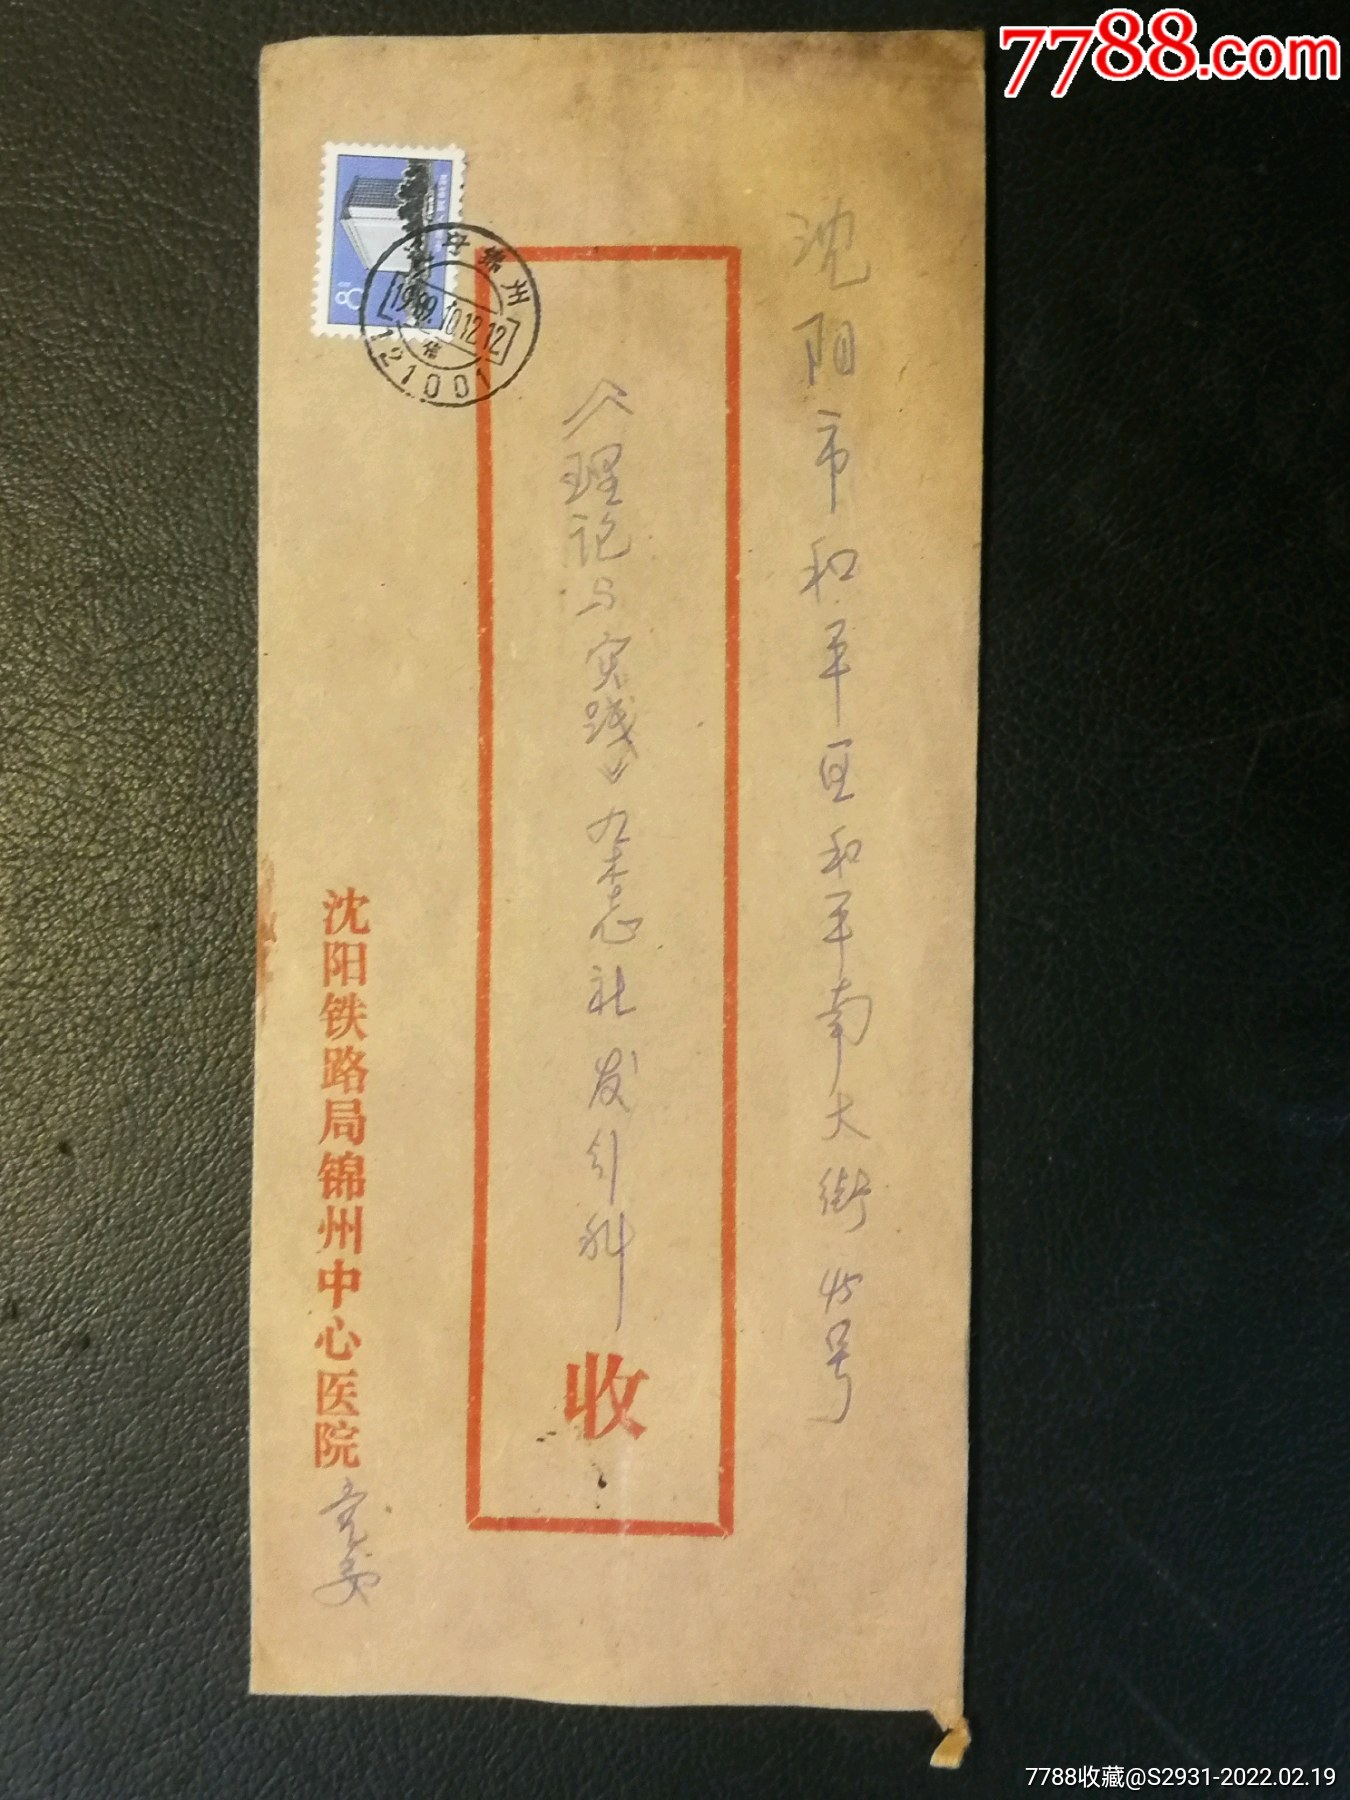 7788.com
沈阳市和平区和平南大街45号
《理论与实践》杂志社发行科
收
沈阳铁路局锦州中心医院
党委
锦州
1989.10.12.12
121001
8
7788收藏@S2931-2022.02.19